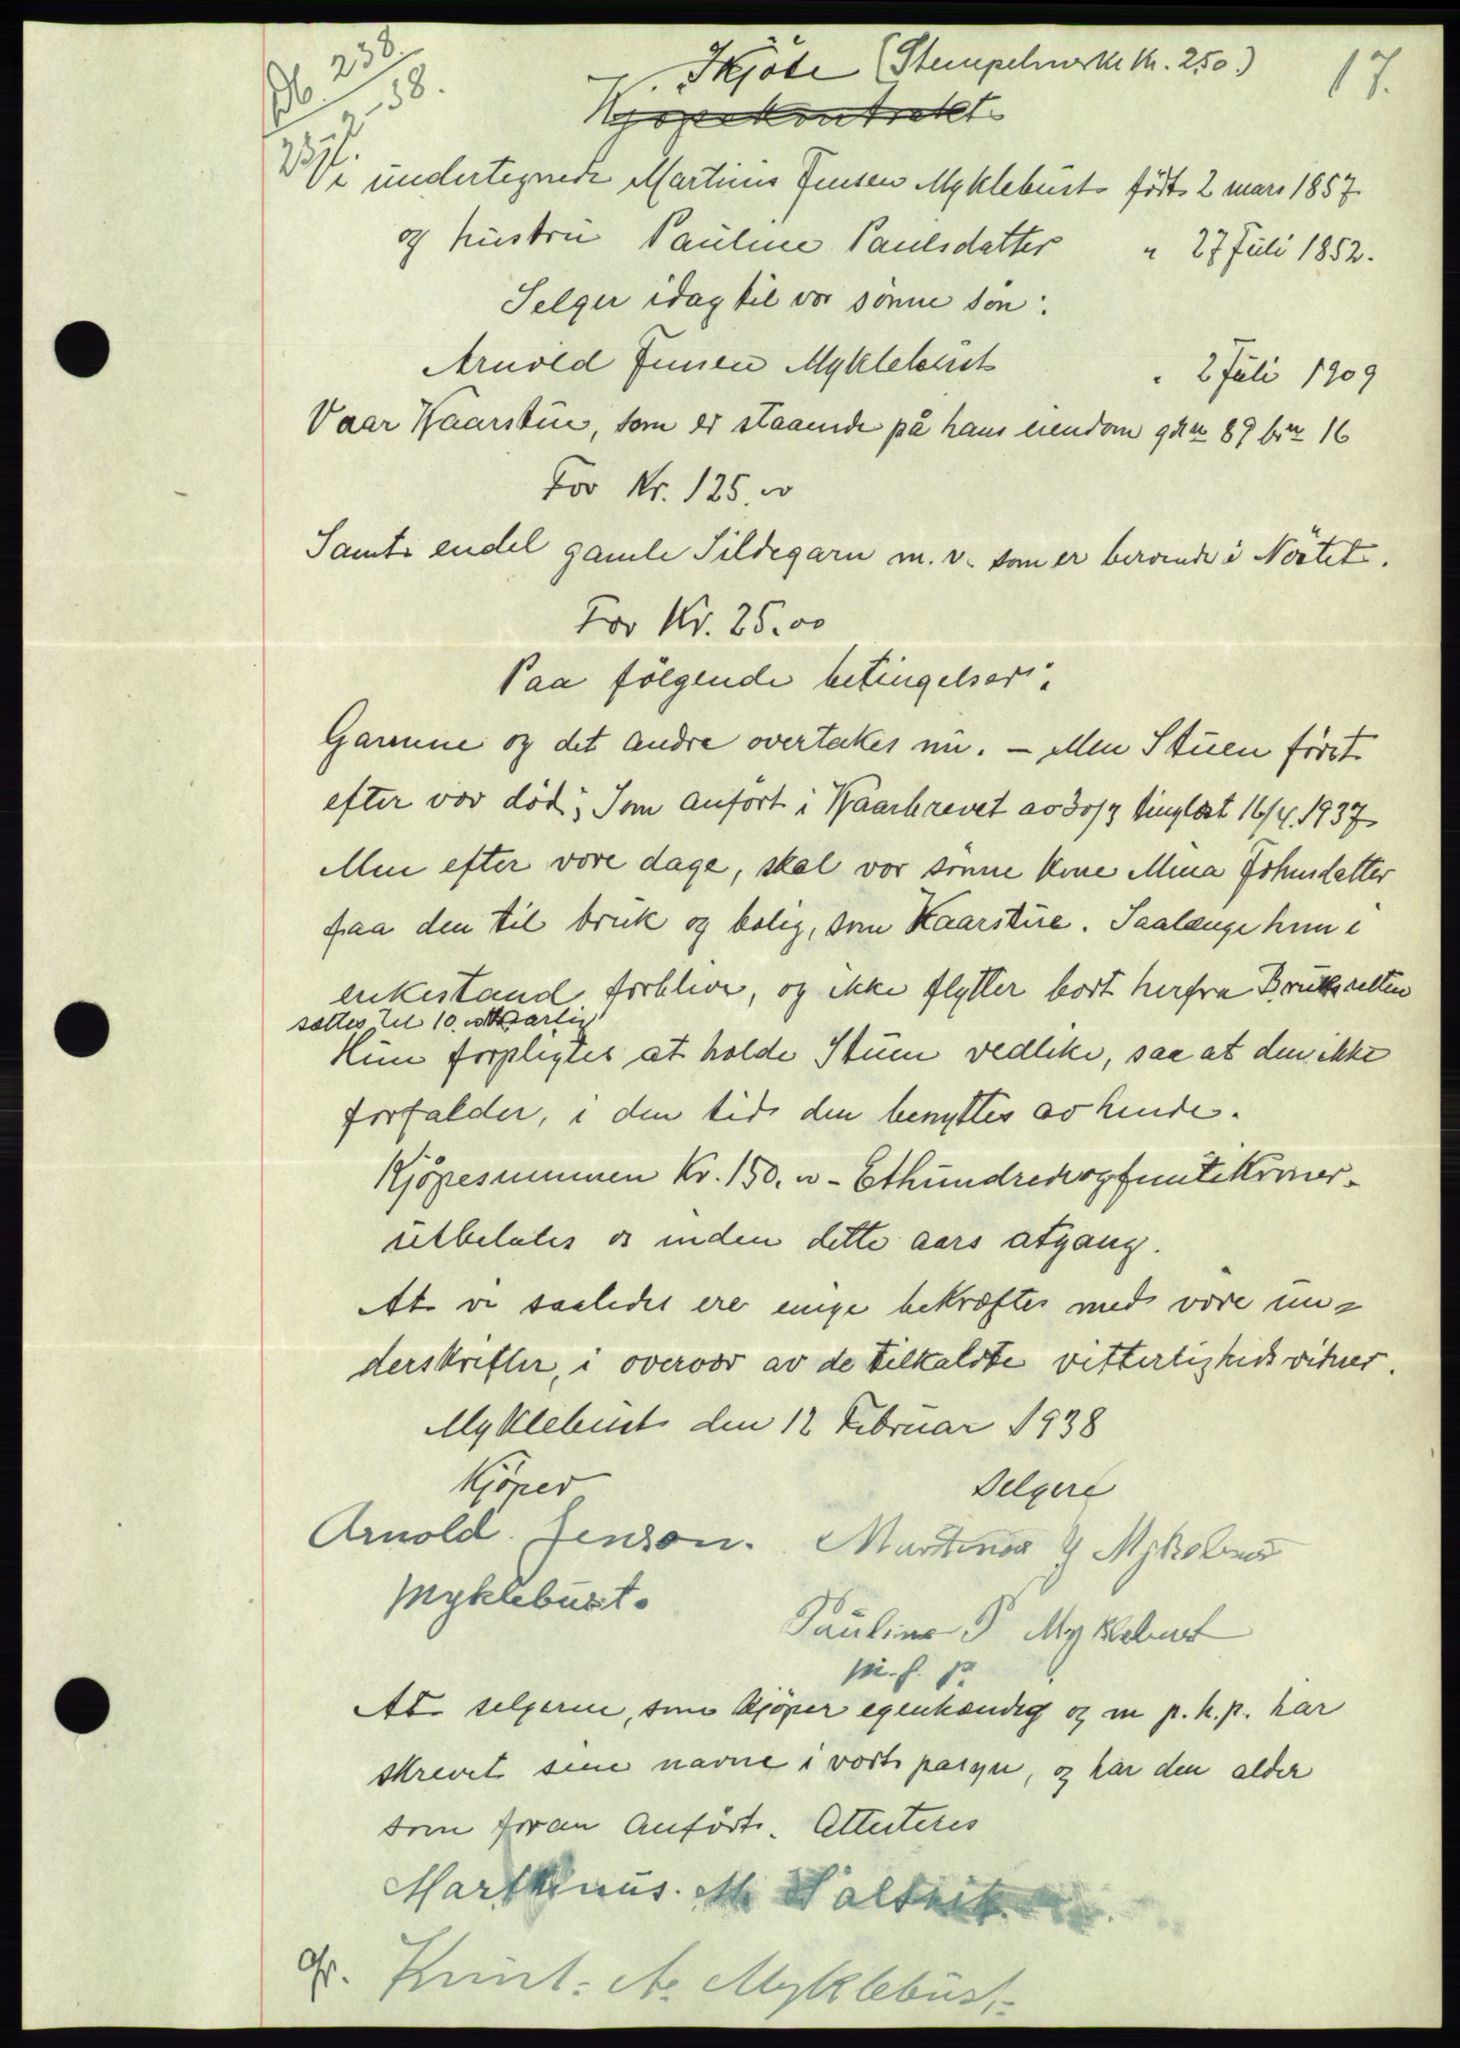 Db. 238.
23/2-38.
17.
Skjöte (Stempelmerke kr. 2,50.)
Kjöpekontrakt
Vi undertegnede Martinus Jensen Myklebust födt 2 mars 1857
og hustru Pauline Paulsdatter " 27 Juli 1852.
Selger idag til vor sönne sön:
Arnold Jensen Myklebust " 2 Juli 1909
Vaar Kaarstue, som er staaende på hans eiendom gdn 89 brn 16
For Kr. 125.00
Samt endel gamle Sildegarn m.v. som er beroende i Nöstet.
For Kr. 25.00
Paa fölgende betingelser:
Garnene og det andre overtakes nu. – Men Stuen först
efter vor död; Som anfört i Kaarbrevet av 30/3 tinglæst 16/4.1937
Men efter vore dage, skal vor sönne kone Mina Johnsdatter
faa den til bruk og bolig, som Kaarstue. Saalænge hun i
enkestand forblive, og ikke flytter bort herfra Bruksretten
sættes til 10.00 Kr aarlig
Hun forpligtes at holde Stuen vedlike, saa at den ikke
forfalder, i den tid den benyttes av hende.
Kjöpesummen Kr. 150.00 – Ethundredeogfemti Kroner.
utbetales os inden dette aars utgang.
At vi saaledes ere enige bekræftes med våre un=
derskrifter, i overvær av de tilkaldte vitterlighetsvitner.
Myklebust den 12 Februar 1938
Kjöper Selgere
Arnold. Jenson. Martinus J Myklebust
Myklebust. Pauline P Myklebust
m. f. p.
At selgerne, som kjöper egenhændig og m p.h.p. har
skrevet sine navne i vort pasyn, og har den alder
som foran anfört. Attesteres
Marthinus. M
Knut. A. Myklebust.